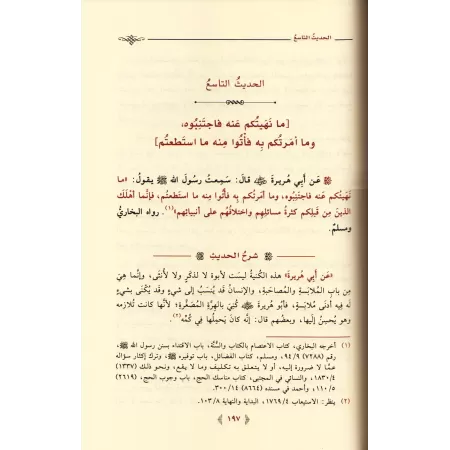 الحديث التاسع
الحديثُ التاسعُ
[ما نَهَيتُكم عَنه فاجتَنِبُوه،
وما أمَرتُكم بِه فأْتُوا مِنه ما استَطعتُم]
عَن أبي هريرةَ ﷺ قالَ: سَمِعتُ رسُولَ الله ﷺ يقولُ: «ما
نَهَيتُكم عَنه فاجتَنِبُوه، وما أمَرتُكم بِه فأتُوا مِنه ما استَطعتُم، فإنَّما أهلَكَ
الذينَ مِن قَبلِكم كَثرةُ مسائلِهم واختلافُهم على أنبيائِهم»(١). رواه البخاريُّ
ومسلمٌ.
شرحُ الحديثِ
«عَن أبي هريرةَ» هذه الكُنيةُ ليسَت لأبوة لا لذكرٍ ولا لأُنثَى، وإنَّما هِيَ
مِن بابِ المُلابَسةِ والمُصاحَبةِ، والإنسانُ قد يُنسَبُ إلى شيءٍ وقد يُكنَى بشَيءٍ
لَه فِيه أدنَى مُلابَسةٍ، فأبُو هُريرةَ كُنِيَ بالهِرَّةِ المُصَغَّرةِ؛ لأنَّها كانَت تُلازمُه
وهو يُحسِنُ إليها، وبعضُهم قال: إنَّه كانَ يَحمِلُها في كُمِّه(٢).
(١) أخرجه البخاري، كتاب الاعتصام بالكتاب والسُّنَّة، باب الاقتداء بسنن رسول الله ﷺ،
رقم (٧٢٨٨) ٩٤/٩، ومسلم، كتاب الفضائل، باب توقيره ﷺ، وترك إكثار سؤاله
عمَّا لا ضرورة إليه، أو لا يتعلق به تكليف وما لا يقع، ونحو ذلك (١٣٣٧)
١٨٣٠/٤، والنسائي في المجتبى، كتاب مناسك الحج، باب وجوب الحج، (٢٦١٩)
١١٠/٥، وأحمد في مسنده (٨٦٦٤) ٣٠٠/١٤.
(٢) ينظر: الاستيعاب ١٧٦٩/٤، البداية والنهاية ١٠٣/٨.
١٩٧